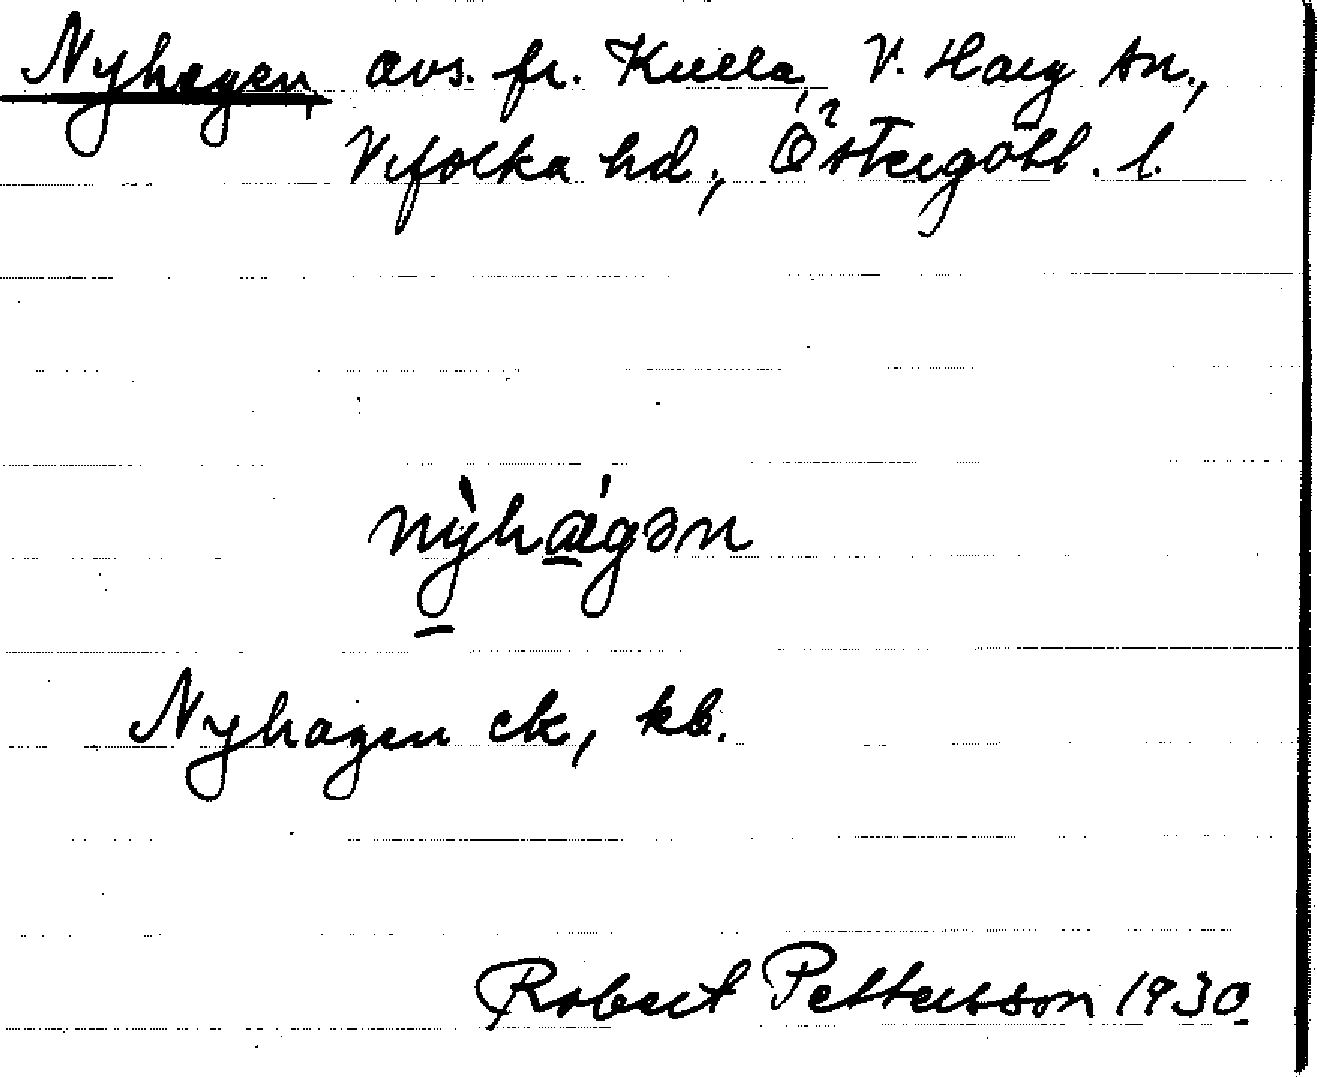 Nyhagen avs. fr. Kulla, V. Harg sn.,
Vifolka hd, Östergötl. l.
nỳhágən
Nyhagen ek, kb.
Robert Pettersson 1930